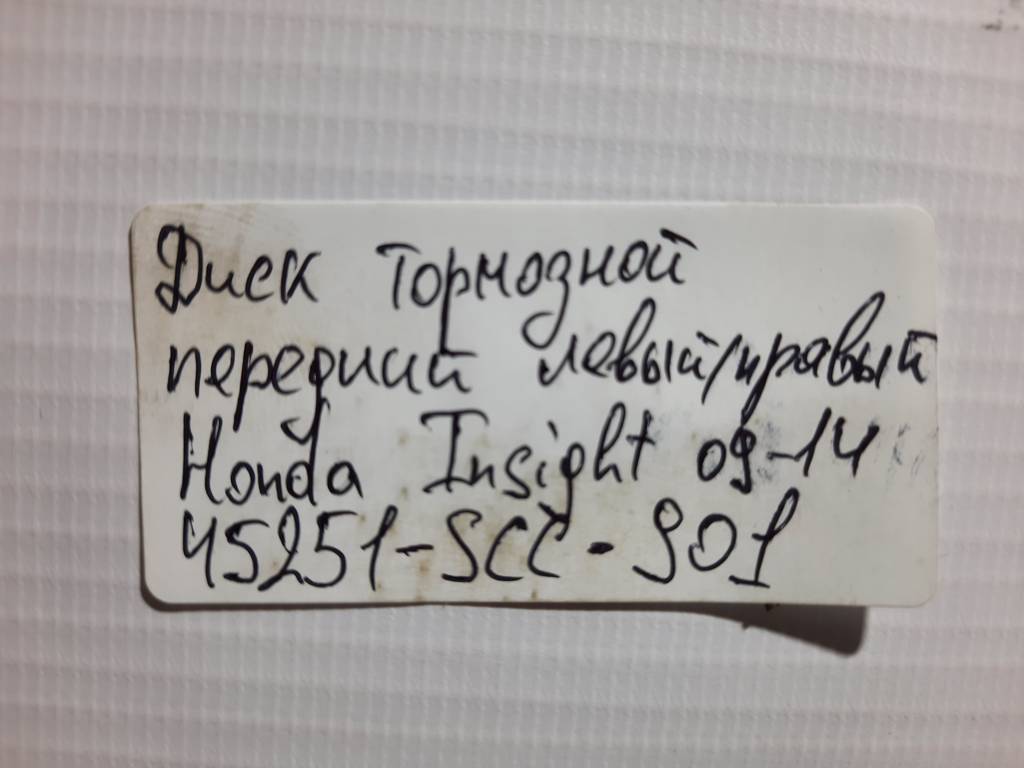 Диск тормозной
передний левый/правый
Honda Insight 09-14
45251-SCC-901